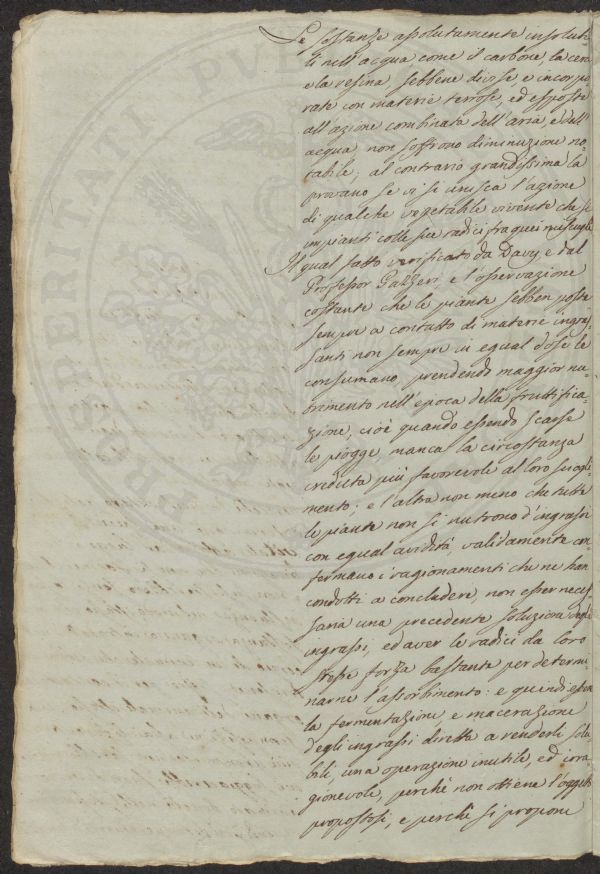 Le sostanze assolutamente insolubi-
li nell'acqua come il carbone, la cera
e la resina, sebbene divise, e incorpo-
rate con materie terrose, ed esposte
all'azione combinata dell'aria, e dell'
acqua non soffrono diminuzione no-
tabile; al contrario grandissima la
provano se vi si unisca l'azione
di qualche vegetabile vivente che si
impianti colle sue radici fra quei miscugli
Il qual fatto verificato da Davy, e dal
Professor Gazzeri, e l'osservazione
costante che le piante sebben poste
sempre a contatto di materie ingras-
santi non sempre in egual dose le
consumano, prendendo maggior nu-
trimento nell'epoca della fruttifica-
zione, cioè quando essendo scarse
le piogge manca la circostanza
creduta più favorevole al loro sciogli-
mento; e l'altra non meno che tutte
le piante non si nutrono d'ingrassi
con egual avidità, validamente con-
fermano i ragionamenti che ne han
condotti a concludere, non esser neces-
saria una precedente soluzione degli
ingrassi, ed aver le radici da loro
stesse forza bastante per determi-
narne l'assorbimento: e quindi essere
la fermentazione, e macerazione
degli ingrassi diretta a renderli solu-
bili, una operazione inutile, ed irra-
gionevole, perchè non ottiene l'oggetto
propostosi, e perchè si propone
PROSPERITATI PVB